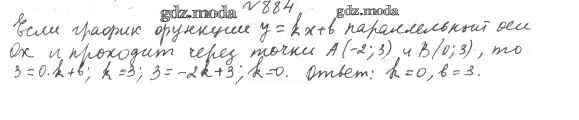 №884
gdz.moda gdz.moda
Если график функции y = kx + b параллельный оси
Ox и проходит через точки A(-2; 3) и B(0; 3), то
3 = 0·k + b; k = 3; 3 = -2k + 3; k = 0. Ответ: k = 0, b = 3.